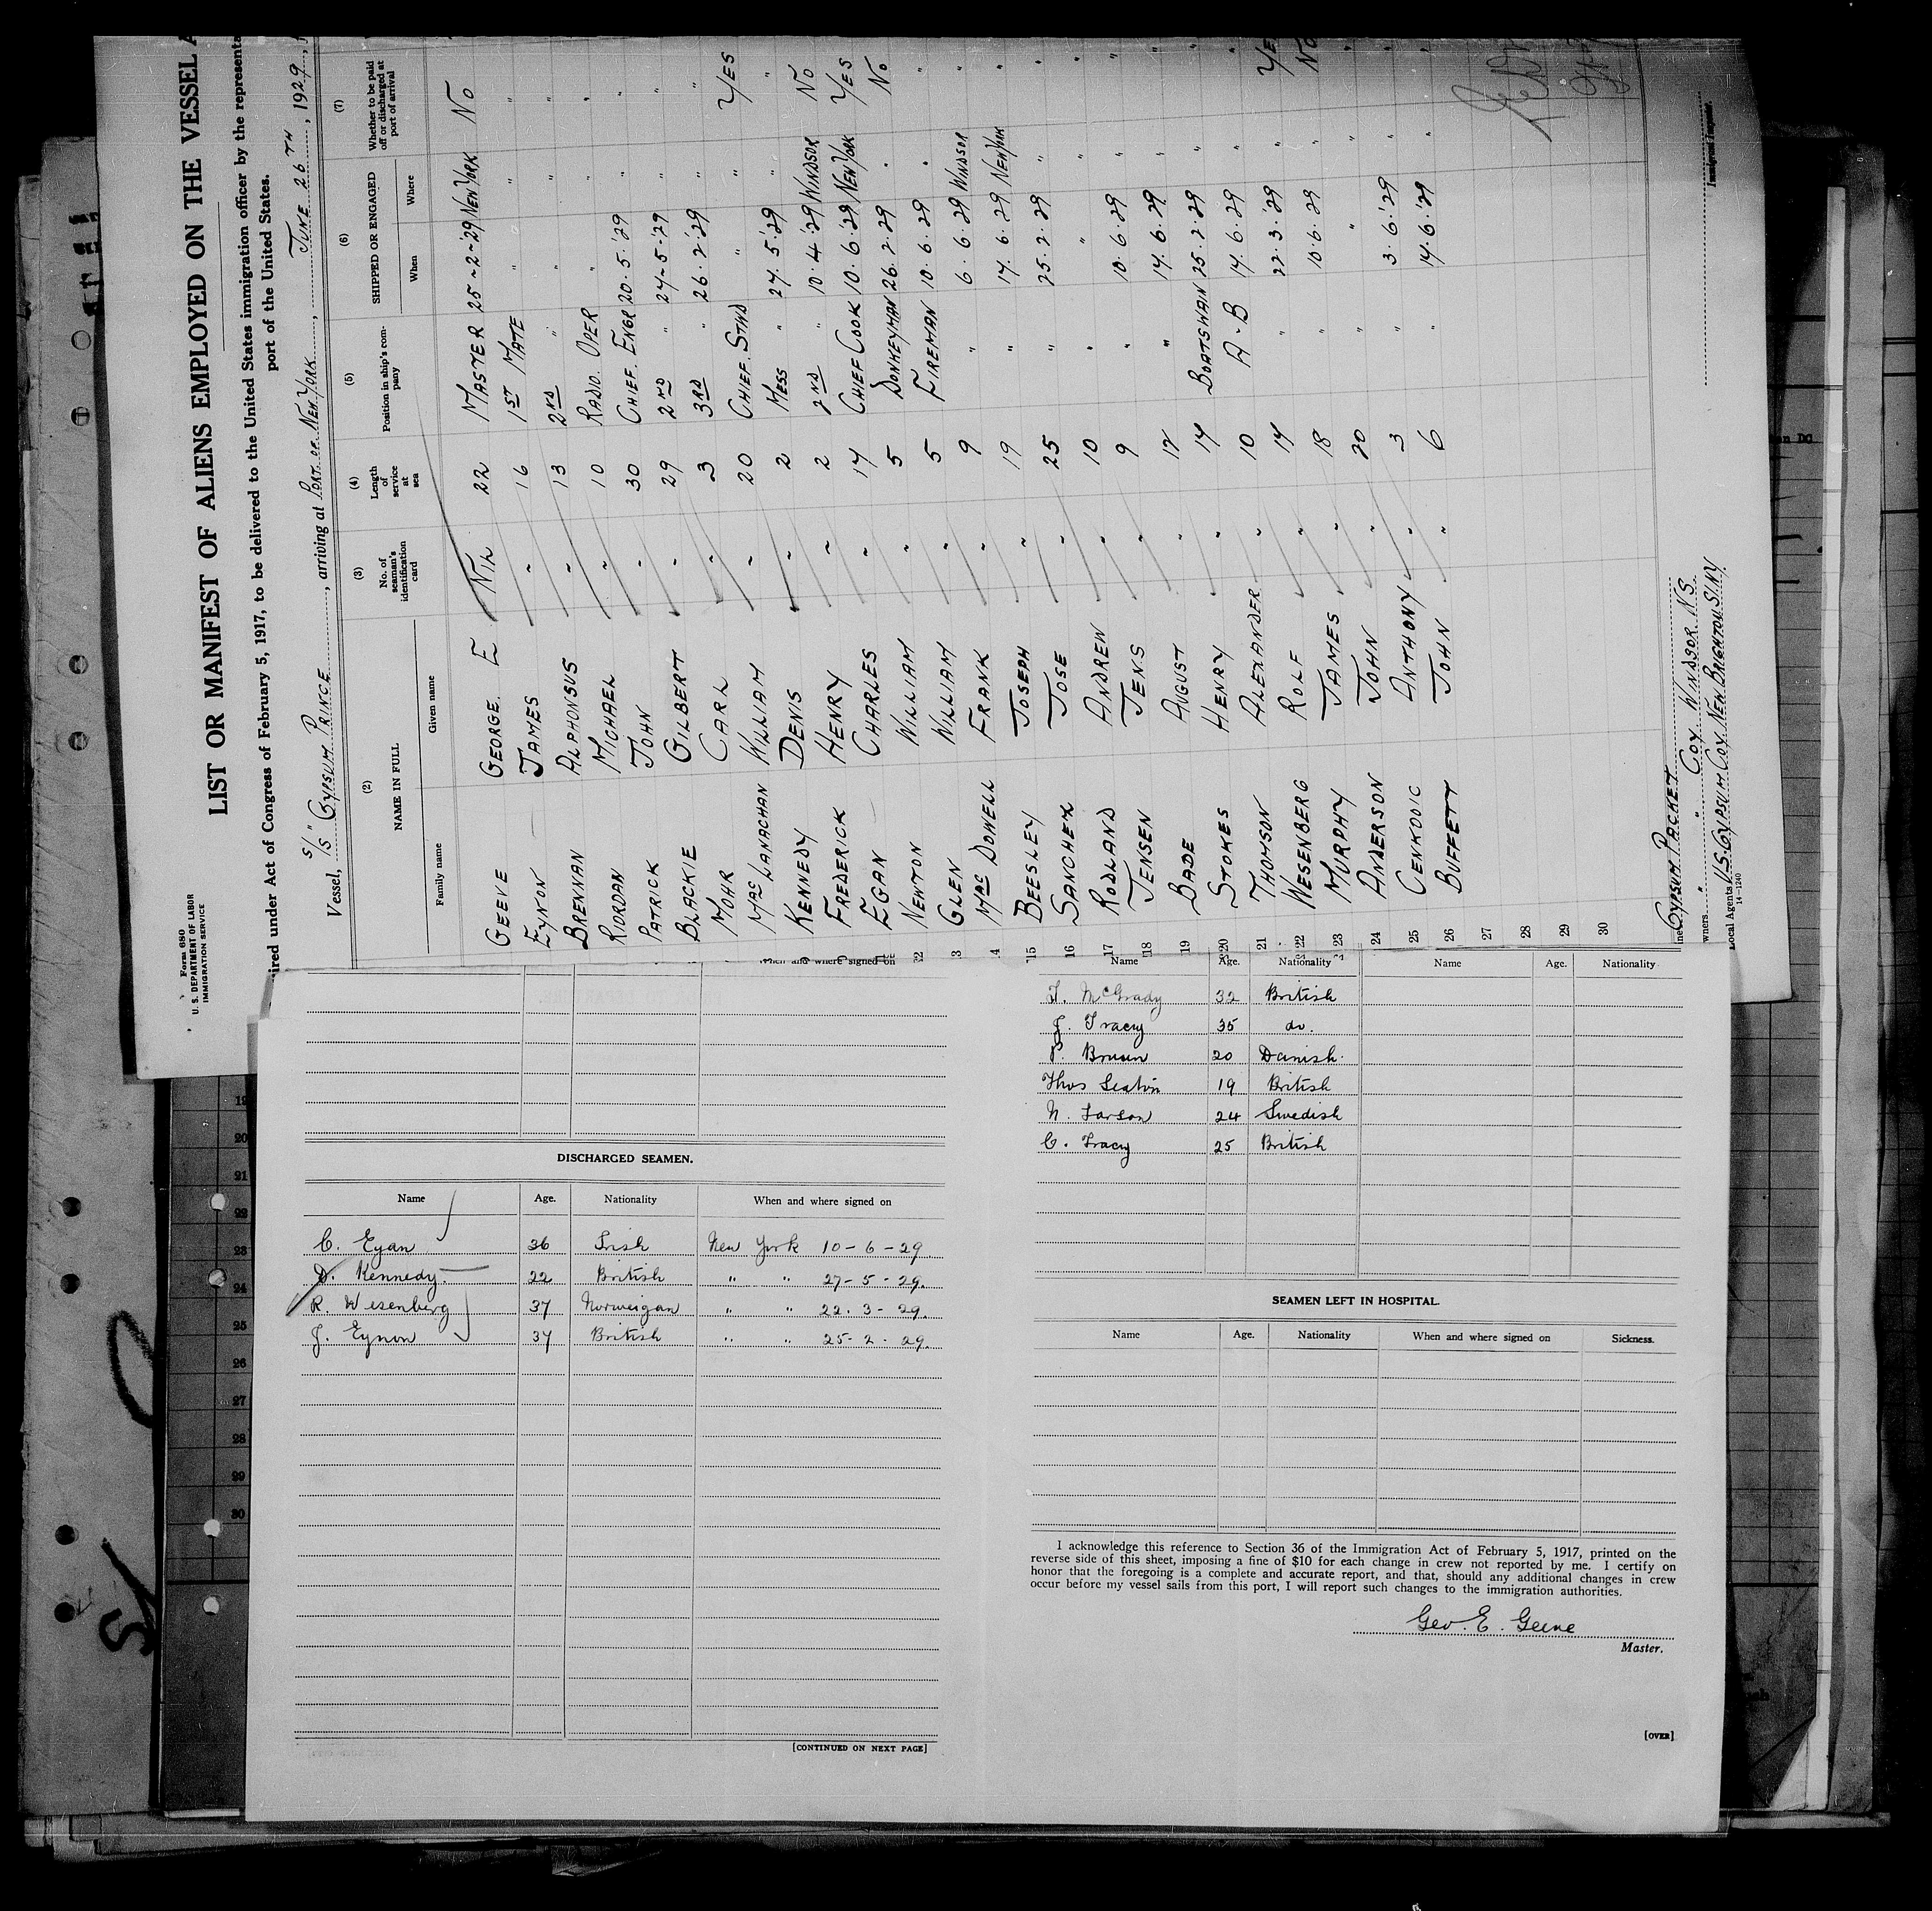 Form 680
U. S. DEPARTMENT OF LABOR
IMMIGRATION SERVICE
LIST OR MANIFEST OF ALIENS EMPLOYED ON THE VESSEL A
ired under Act of Congress of February 5, 1917, to be delivered to the United States immigration officer by the representa
port of the United States.
Vessel, S/S "GYPSUM PRINCE, arriving at PORT OF NEW YORK, JUNE 26TH, 1929,
(2) (3) (4) (5) (6) (7)
NAME IN FULL No. of seaman's identification card Length of service at sea Position in ship's company SHIPPED OR ENGAGED Whether to be paid off or discharged at port of arrival
Family name Given name When Where
GEEVE GEORGE. E NIL 22 MASTER 25-2-'29 NEW YORK NO
EYNON JAMES " 16 1ST MATE " " "
BRENNAN ALPHONSUS " 13 2ND " " " "
RIORDAN MICHAEL " 10 RADIO. OPER " " "
PATRICK JOHN " 30 CHIEF. ENGR 20.5.'29 " "
BLACKIE GILBERT " 29 2ND " 24-5-'29 " "
MOHR CARL " 3 3RD " 26.2.'29 " "
MAC LANACHAN WILLIAM " 20 CHIEF. STWD " " YES
KENNEDY DENIS " 2 MESS " 27.5.'29 " "
FREDERICK HENRY " 2 2ND " 10.4.'29 WINDSOR NO
EGAN CHARLES " 14 CHIEF COOK 10.6.'29 NEW YORK YES
NEWTON WILLIAM " 5 DONKEYMAN 26.2.29 " NO
GLEN WILLIAM " 5 FIREMAN 10.6.29 " "
MAC DOWELL FRANK " 9 " 6.6.29 WINDSOR "
15 BEESLEY JOSEPH " 19 " 14.6.29 NEW YORK "
16 SANCHEX JOSE " 25 " 25.2.29 " "
17 RODLAND ANDREW " 10 " " " "
18 JENSEN JENS " 9 " 10.6.29 " "
19 BADE AUGUST " 12 " 14.6.29 " "
20 STOKES HENRY " 14 BOATSWAIN 25.2.29 " "
21 THOMSON ALEXANDER " 10 A-B 14.6.29 " "
22 WESENBERG ROLF " 14 " 22.3.'29 " YES
23 MURPHY JAMES " 18 " 10.6.29 " NO
24 ANDERSON JOHN " 20 " " " "
25 CENKODIC ANTHONY " 3 " 3.6.'29 "
26 BUFFETT JOHN " 6 " 14.6.'29 "
27
28
29
30
GYPSUM PACKET
wners " " COY. WINDSOR. N.S.
Local Agents U.S. GYPSUM COY. NEW BRIGHTON S.I.N.Y.
14-1240
Immigrant Inspector.
DISCHARGED SEAMEN.
Name Age. Nationality When and where signed on
C. Egan 36 Irish New York 10-6-29
D. Kennedy 22 British " " 27-5-29.
R. Wesenberg 37 Norweigan " " 22.3-29.
J. Eynon 37 British " " 25-2-29.
[CONTINUED ON NEXT PAGE]
Name Age. Nationality Name Age. Nationality
T. McGrady 32 British
J. Tracey 35 do.
P. 20 Danish
Thos Seaton 19 British
N. Larson 24 Swedish
C. Tracy 25 British
SEAMEN LEFT IN HOSPITAL.
Name Age. Nationality When and where signed on Sickness.
I acknowledge this reference to Section 36 of the Immigration Act of February 5, 1917, printed on the
reverse side of this sheet, imposing a fine of $10 for each change in crew not reported by me. I certify on
honor that the foregoing is a complete and accurate report, and that, should any additional changes in crew
occur before my vessel sails from this port, I will report such changes to the immigration authorities.
Geo. E. Geeve
Master.
[OVER]
19
20
21
22
23
24
25
26
27
28
29
30